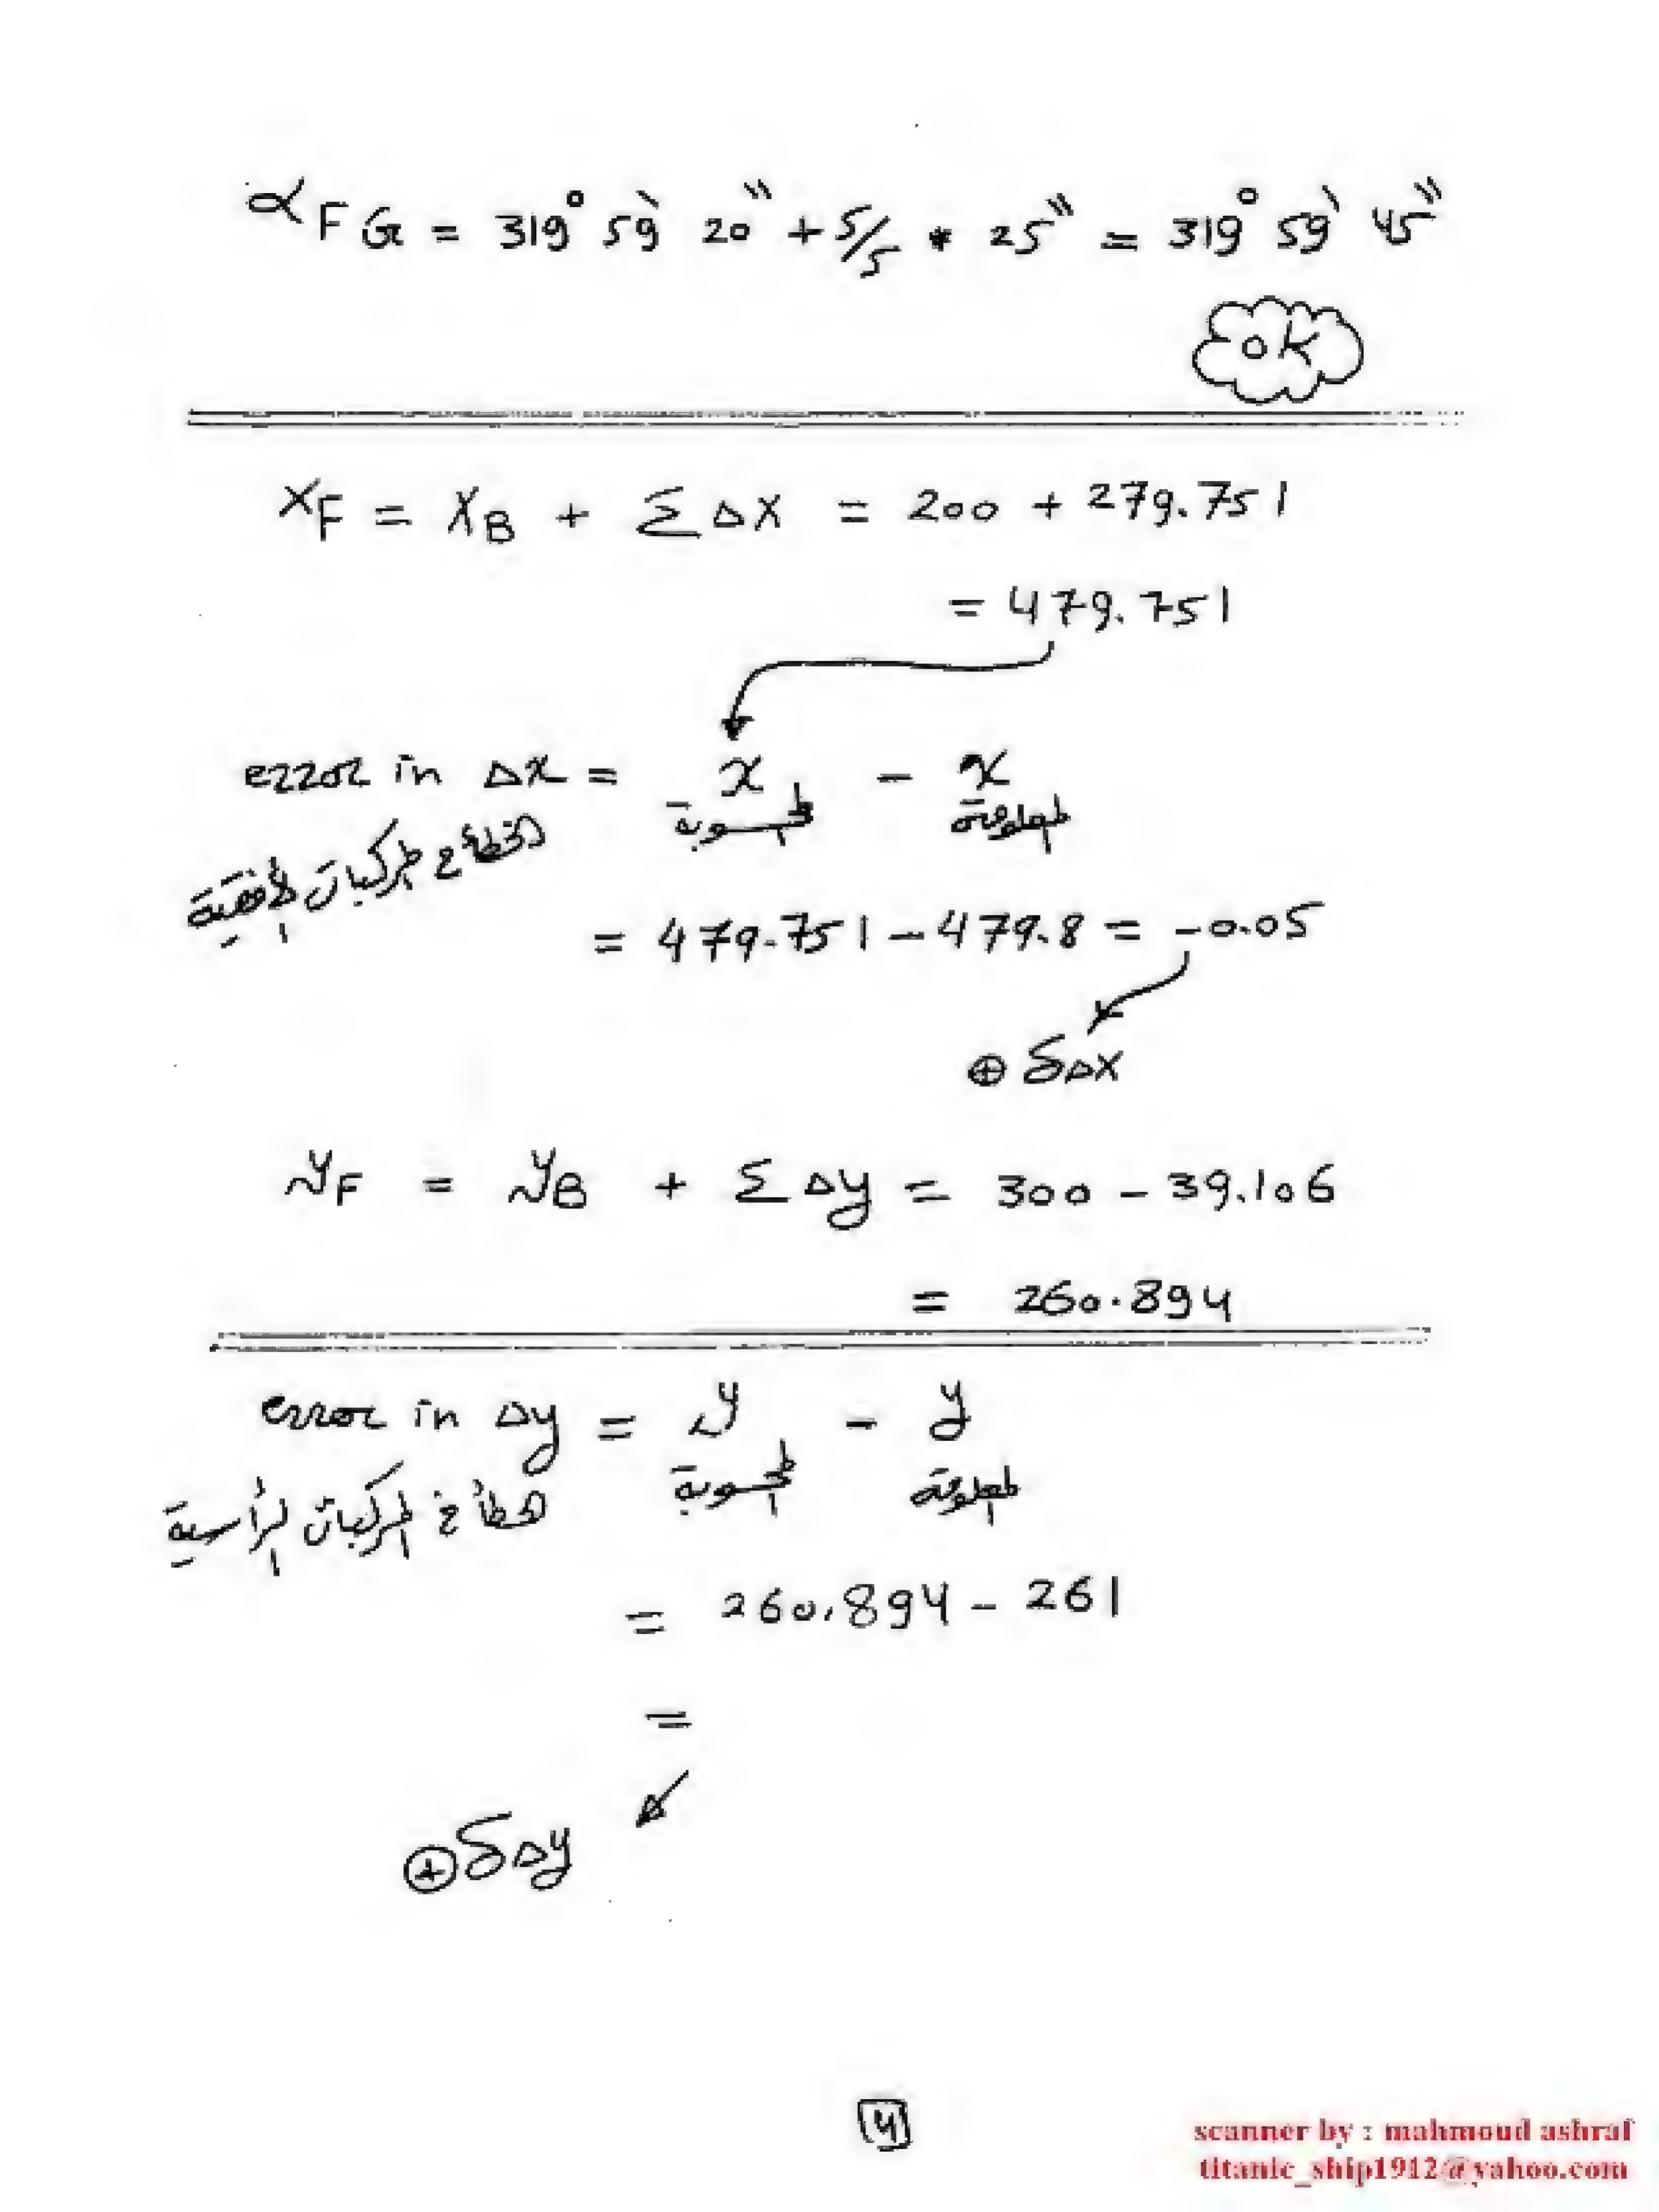 α FG = 319° 59' 20" + 5/5 * 25" = 319° 59' 45"
OK
XF = XB + Σ ΔX = 200 + 279.751
= 479.751
error in Δx = x - x
المحسوبة المعلومة
الخطأ في المركبات الأفقية
= 479.751 - 479.8 = -0.05
⊕ δΔX
yF = yB + Σ Δy = 300 - 39.106
= 260.894
error in Δy = y - y
المحسوبة المعلومة
الخطأ في المركبات الرأسية
= 260.894 - 261
=
⊕ δΔy
4
scanner by : mahmoud ashraf
titanic_ship1912@yahoo.com